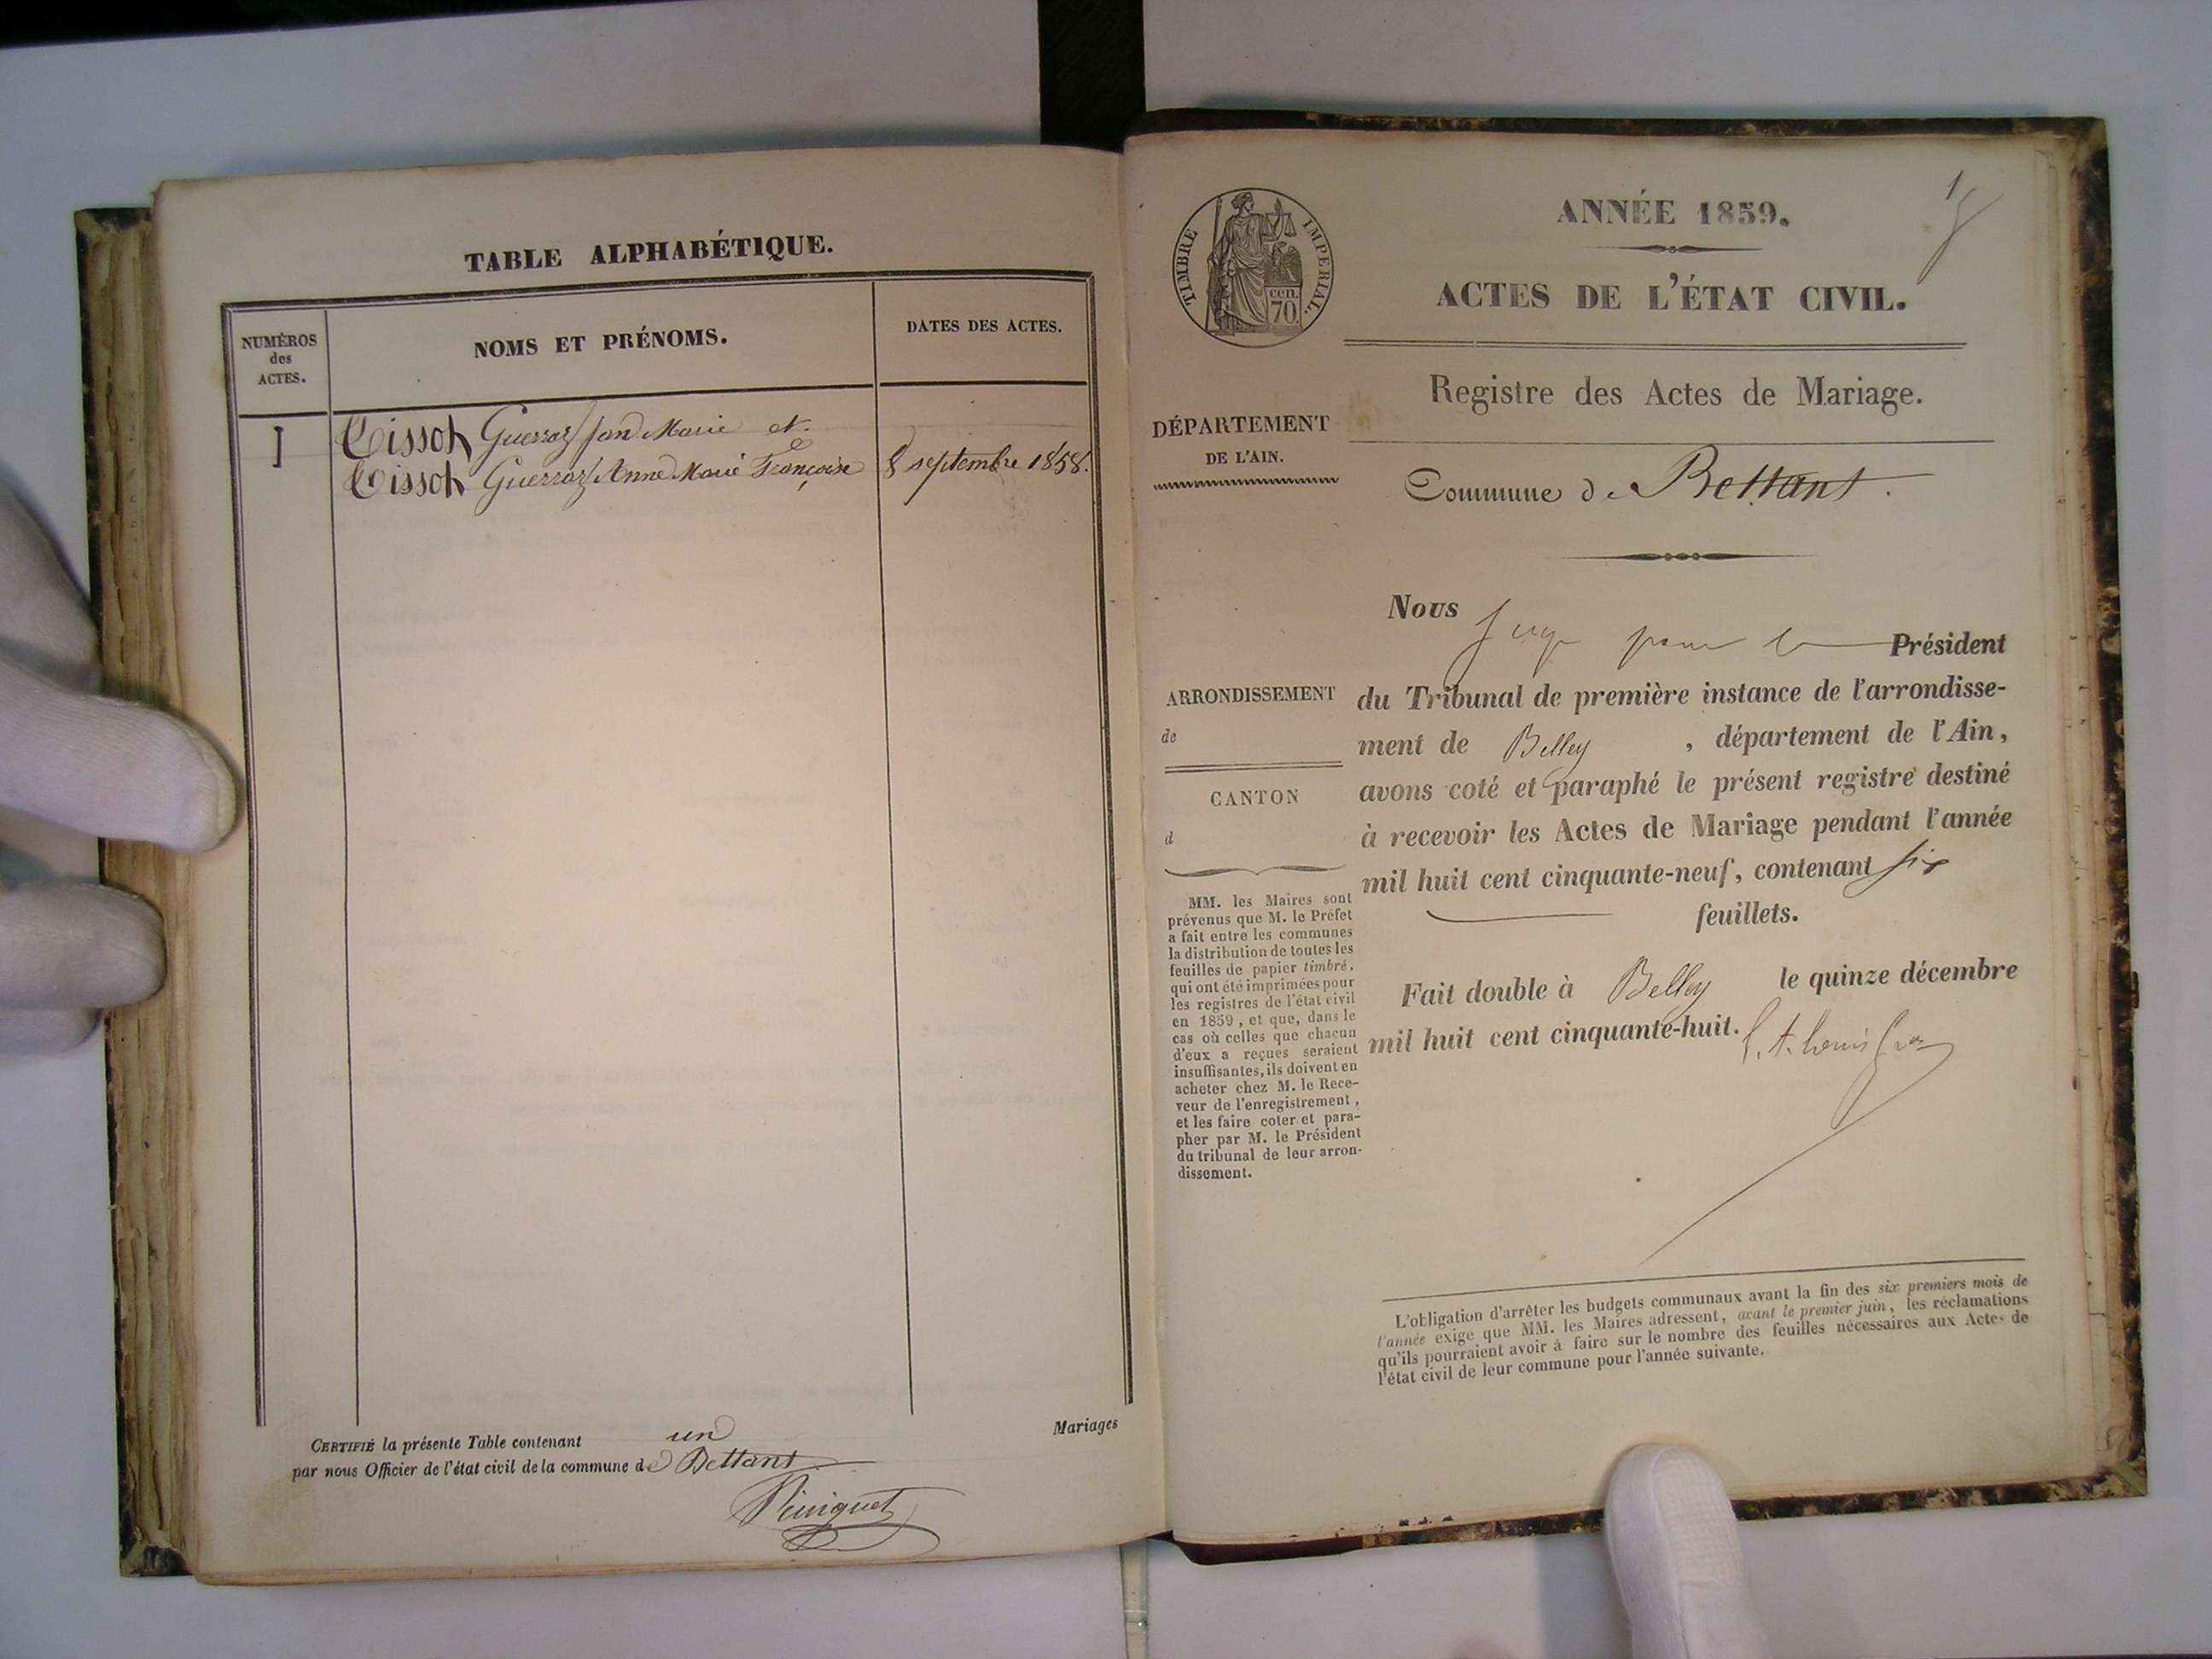 TABLE ALPHABÉTIQUE.
NUMÉROS
des
ACTES.
NOMS ET PRÉNOMS.
DATES DES ACTES.
1
Tissot Guerraz Jean Marie et
Tissot Guerraz Anne Marie Françoise
8 septembre 1858.
CERTIFIÉ la présente Table contenant un
Mariages
par nous Officier de l'état civil de la commune de Bettant
TIMBRE IMPERIAL.
cen.
70.
ANNÉE 1859.
ACTES DE L'ÉTAT CIVIL.
Registre des Actes de Mariage.
DÉPARTEMENT
DE L'AIN.
Commune de Bettant.
Nous
Juge pour le Président
ARRONDISSEMENT
de
CANTON
d
du Tribunal de première instance de l'arrondisse-
ment de Belley, département de l'Ain,
avons coté et paraphé le présent registre destiné
à recevoir les Actes de Mariage pendant l'année
mil huit cent cinquante-neuf, contenant six
feuillets.
MM. les Maires sont
prévenus que M. le Préfet
a fait entre les communes
la distribution de toutes les
feuilles de papier timbré,
qui ont été imprimées pour
les registres de l'état civil
en 1859, et que, dans le
cas où celles que chacun
d'eux a reçues seraient
insuffisantes, ils doivent en
acheter chez M. le Rece-
veur de l'enregistrement,
et les faire coter et para-
pher par M. le Président
du tribunal de leur arron-
dissement.
Fait double à Belley le quinze décembre
mil huit cent cinquante-huit.
L'obligation d'arrêter les budgets communaux avant la fin des six premiers mois de
l'année exige que MM. les Maires adressent, avant le premier juin, les réclamations
qu'ils pourraient avoir à faire sur le nombre des feuilles nécessaires aux Actes de
l'état civil de leur commune pour l'année suivante.